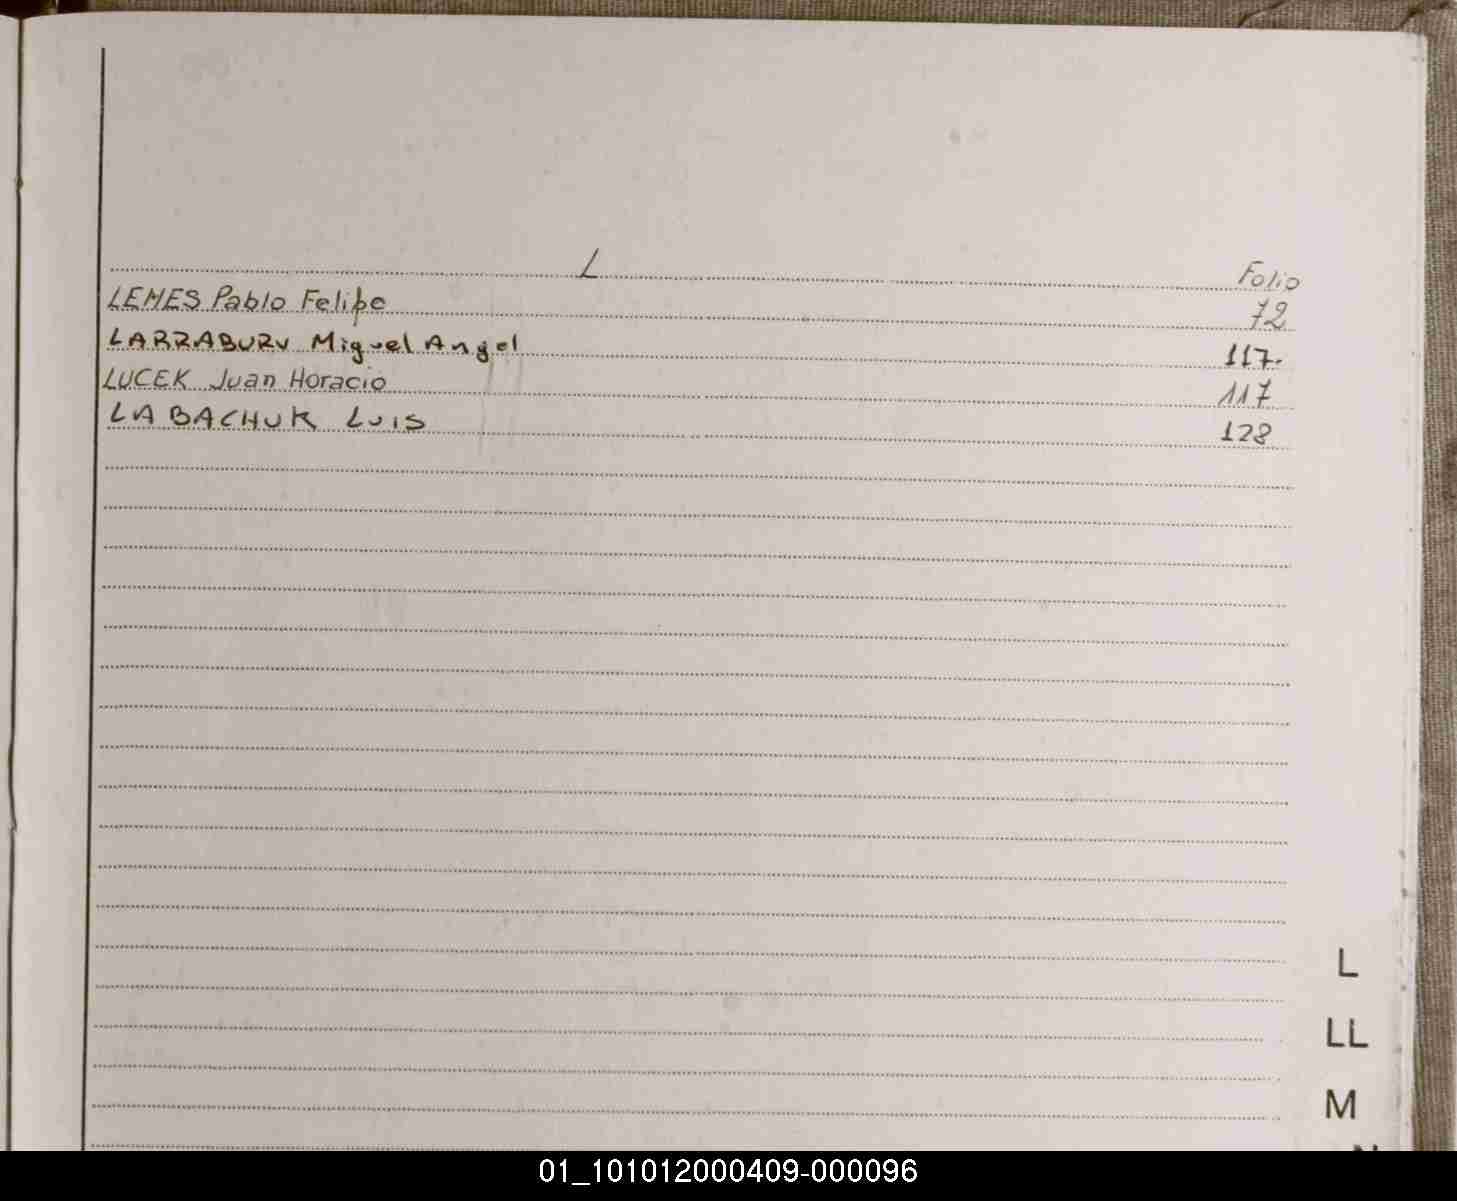 L Folio
LEMES Pablo Felipe 72
LARRABURU Miguel Angel 117.
LUCEK Juan Horacio 117
LABACHUK LUIS 128
L
LL
M
01_101012000409-000096